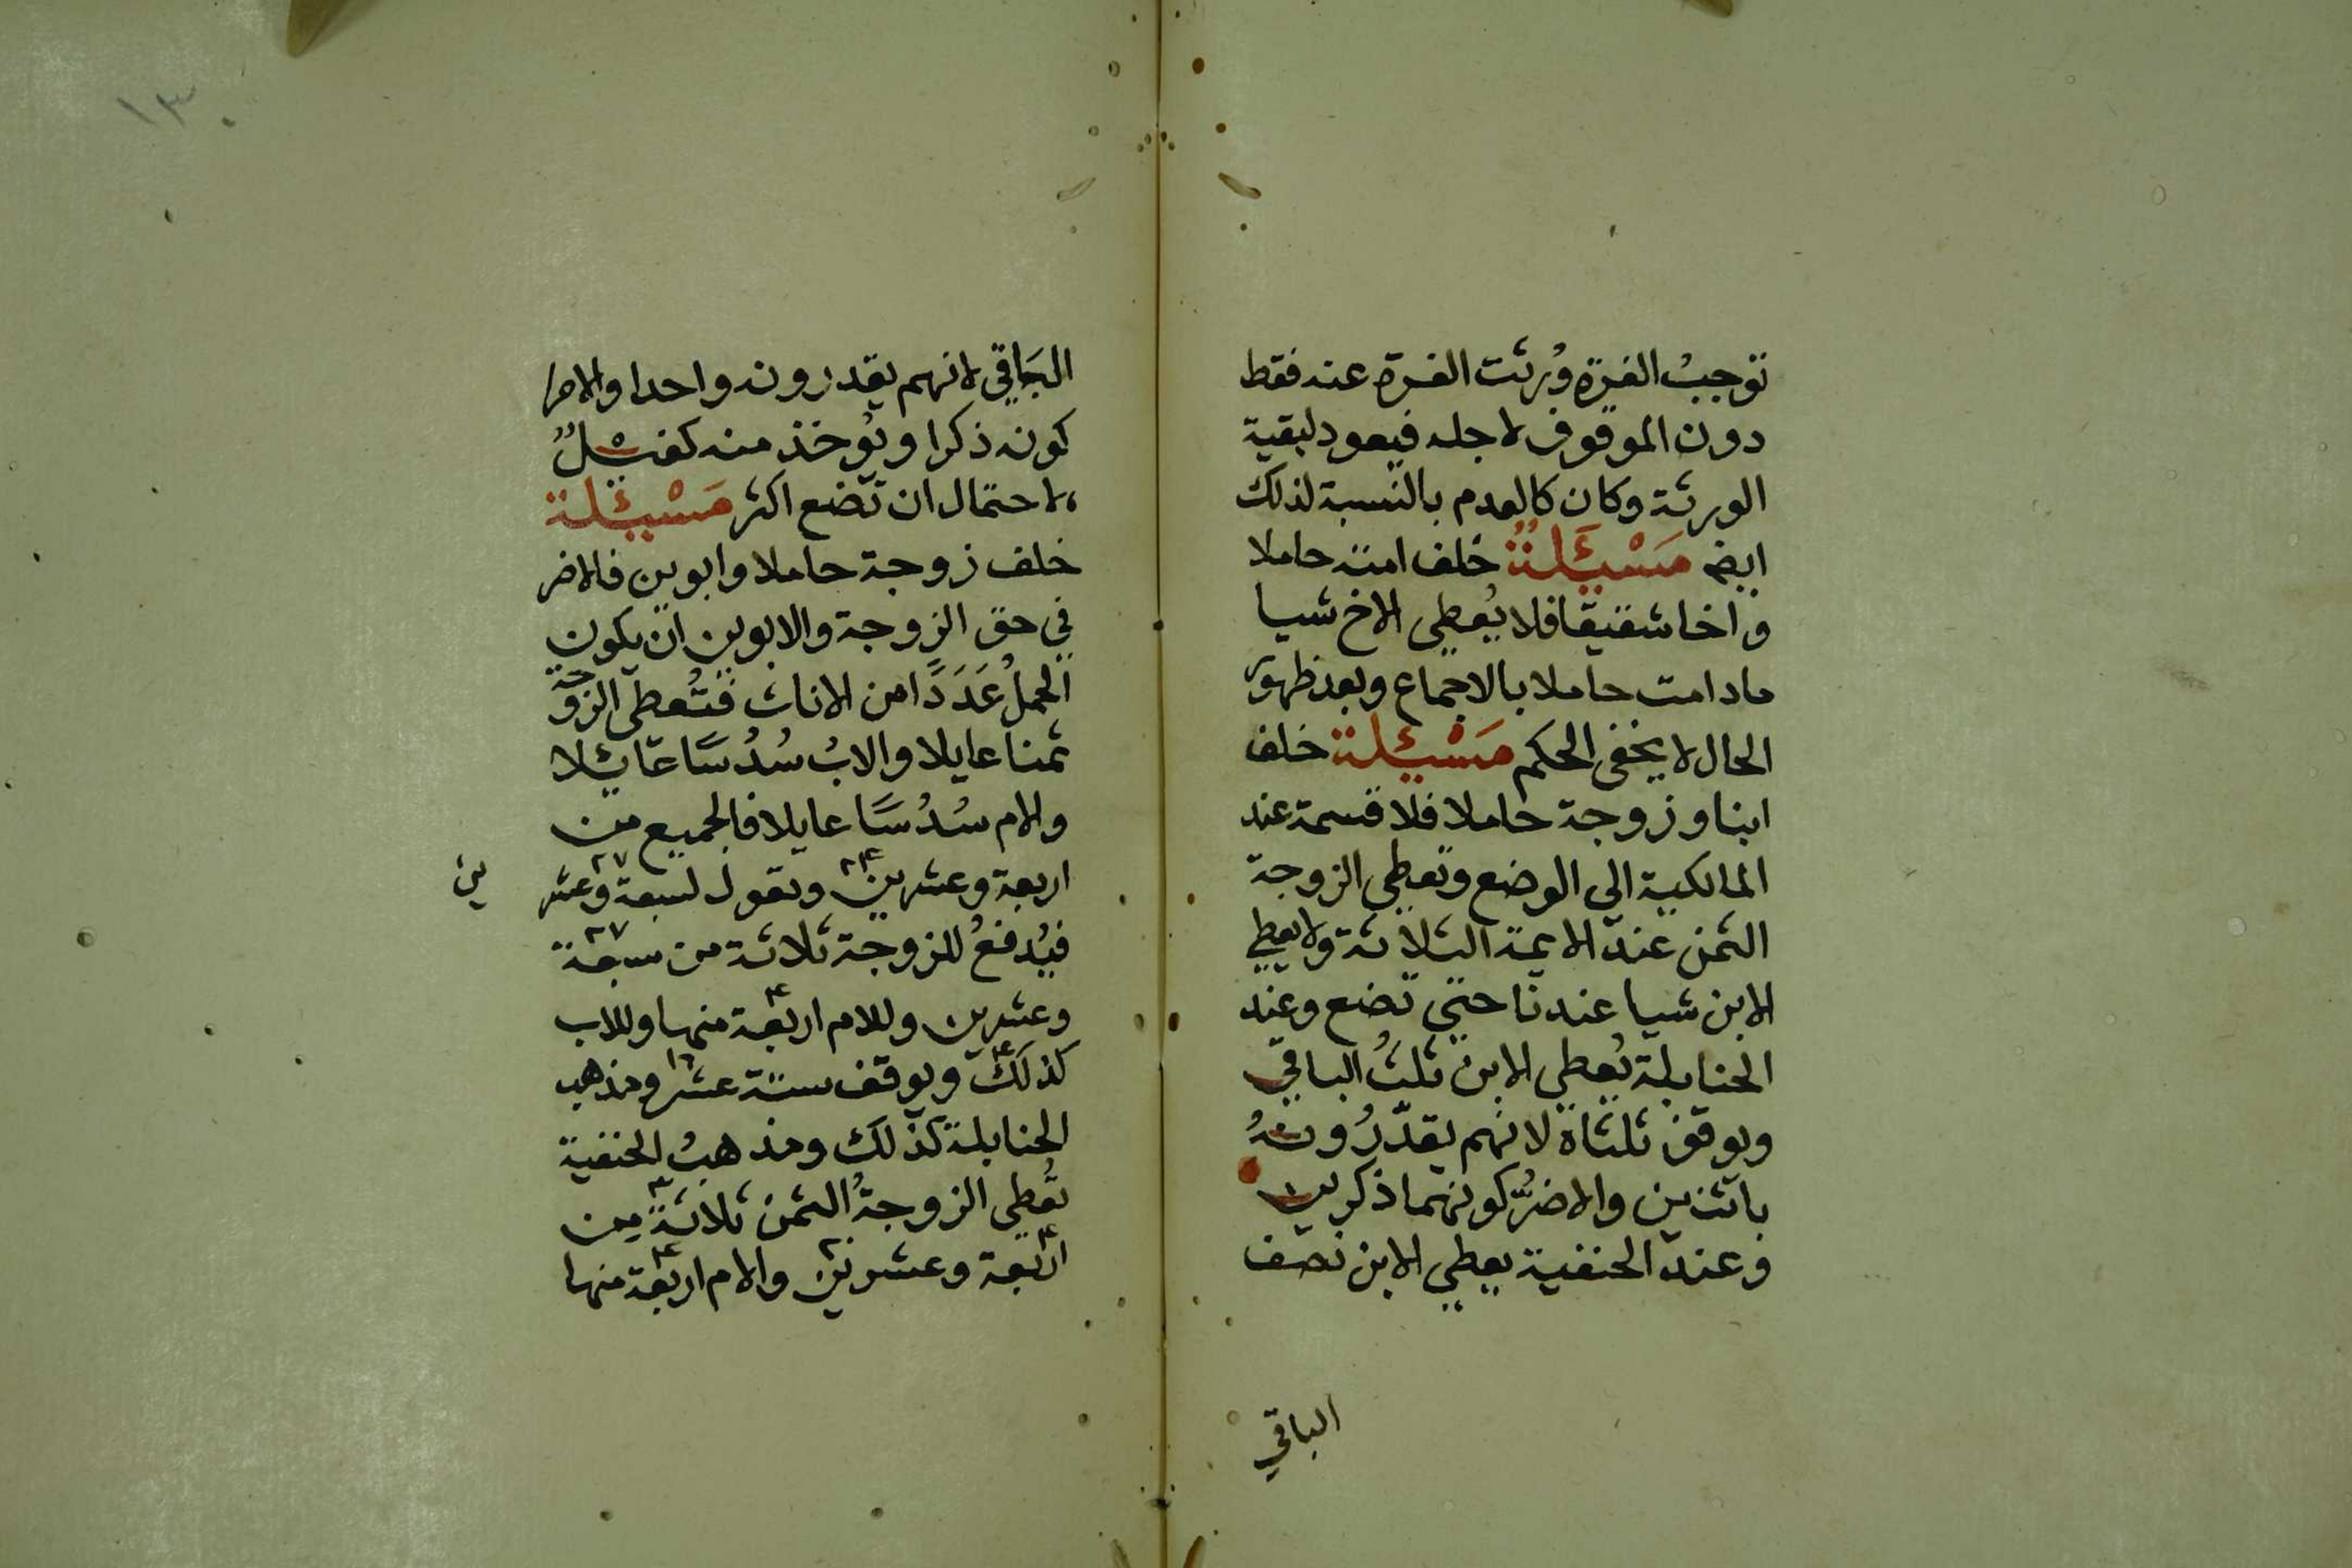 توجب الغرة وُرثت الغرة عنه فقط
دون الموقوف لاجله فيعود لبقية
الورثة وكان كالعدم بالنسبة لذلك
ايضا مَسْئَلةٌ خلف امته حاملا
واخا شقيقا فلا يُعطي الاخ شيا
مادامت حاملا بالاجماع وبعد ظهور
الحال لا يخفى الحكم مَسْئلة خلف
ابنا وزوجة حاملا فلا قسمة عند
المالكية الي الوضع وتعطي الزوجة
الثمن عند الايمة الثلاثة ولا يعطي
الابن شيا عندنا حتي تضع وعند
الحنابلة يُعطي الابن ثلثُ الباقي
ويوقف ثلثاه لانهم يقدّرُونهُ
باثنين والاضرُّ كونهما ذكرين
وعند الحنفية يعطي الابن نصف
الباقي
١٣٠
البَاقي لانهم يقدرونه واحدا والاضر
كونه ذكرا ويُوخذ منه كفيلٌ
لاحتمال ان تضع اكثر مَسْئلة
خلف زوجة حاملا وابوين فالاضر
في حق الزوجة والابوين ان يكون
الحملُ عَدَدًا من الاناث فتُعطى الزوجة
ثمنا عايلا والابُ سُدُسًا عَائلا
والام سُدُسًا عايلا فالجميع من
اربعة وعشرين ٢٤ وتعول لسبعة وعشرين ٢٧
فيُدفعُ للزوجة ثلاثة من سبعة ٢٧
وعشرين وللام اربعة ٤ منها وللاب
كذلك ٤ ويوقف ستة عشر ١٦ ومذهب
الحنابلة كذلك ومذهبُ الحنفية
تُعطي الزوجةُ الثمن ثلاثة ٣ من
اربعة وعشرين ٢٤ والام اربعة ٤ منها